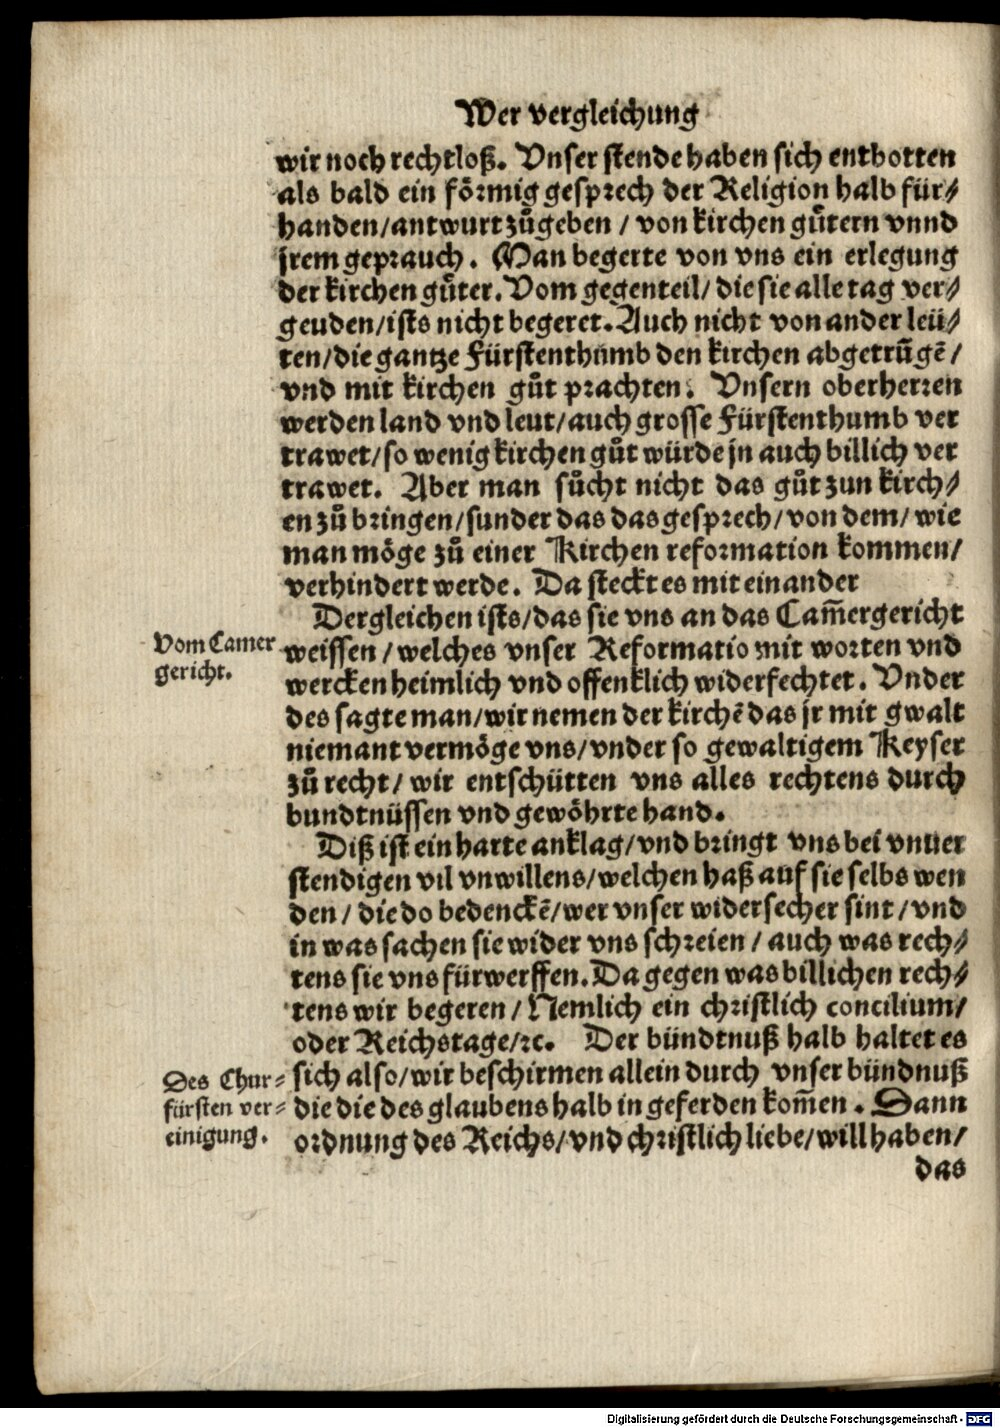 Wer vergleichung
wir noch rechtloß. Vnser stende haben sich entbotten
als bald ein förmig gesprech der Religion halb für⸗
handen/antwurt zůgeben / von kirchen gůtern vnnd
jrem geprauch. Man begerte von vns ein erlegung
der kirchen gůter. Vom gegenteil/ die sie alle tag ver⸗
geuden/ists nicht begeret. Auch nicht von ander leü⸗
ten/die gantze Fürstenthumb den kirchen abgetrůgē/
vnd mit kirchen gůt prachten. Vnsern oberherren
werden land vnd leut/auch grosse Fürstenthumb ver
trawet/so wenig kirchen gůt würde jn auch billich ver
trawet. Aber man sůcht nicht das gůt zun kirch⸗
en zů bringen/sunder das das gesprech/von dem/wie
man möge zů einer Kirchen reformation kommen/
verhindert werde. Da steckt es mit einander
Dergleichen ists/das sie vns an das Cam̄ergericht
Vom Camer
gericht.
weissen/welches vnser Reformatio mit worten vnd
wercken heimlich vnd offenklich widerfechtet. Vnder
des sagte man/wir nemen der kirchē das jr mit gwalt
niemant vermöge vns/vnder so gewaltigem Keyser
zů recht/ wir entschütten vns alles rechtens durch
bundtnüssen vnd gewöhrte hand.
Diß ist ein harte anklag/vnd bringt vns bei vnuer
stendigen vil vnwillens/welchen haß auf sie selbs wen
den/ die do bedenckē/wer vnser widersecher sint/vnd
in was sachen sie wider vns schreien/ auch was rech⸗
tens sie vns fürwerffen. Da gegen was billichen rech⸗
tens wir begeren/Nemlich ein christlich concilium/
oder Reichstage/ꝛc. Der bündtnuß halb haltet es
Des Chur⸗
fürsten ver⸗
einigung.
sich also/wir beschirmen allein durch vnser bündnuß
die die des glaubens halb in geferden kom̄en. Dann
ordnung des Reichs/vnd christlich liebe/will haben/
das
Digitalisierung gefördert durch die Deutsche Forschungsgemeinschaft - DFG